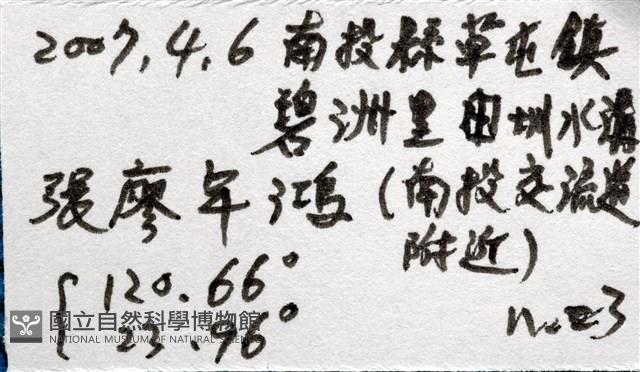 2007.4.6 南投縣草屯鎮
碧洲里田圳水溝
張廖年鴻(南投交流道
附近)
120.66°
23.96°
n=23
國立自然科學博物館
NATIONAL MUSEUM OF NATURAL SCIENCE